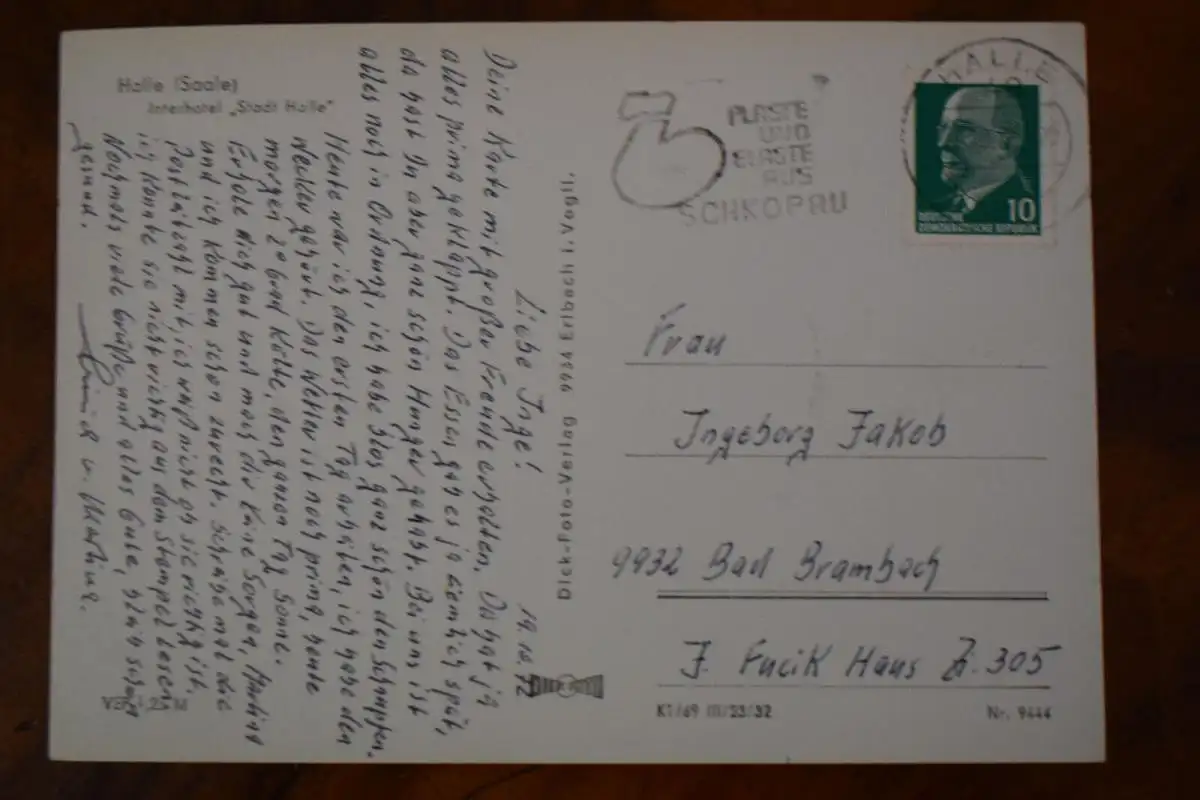 Halle (Saale)
Interhotel „Stadt Halle"
19.10.72
Liebe Inge!
Deine Karte mit großer Freude erhalten. Da hat ja
alles prima geklappt. Das Essen gab es ja ziemlich spät,
da hast Du aber ganz schön Hunger gehabt. Bei uns ist
alles noch in Ordnung, ich habe blos ganz schön den Schnupfen.
Heute war ich den ersten Tag arbeiten, ich habe den
Wecker gehört. Das Wetter ist noch prima, heute
morgen 2 Grad Kälte, den ganzen Tag Sonne.
Erhole dich gut und mach dir keine Sorgen, Martina
und ich kommen schon zurecht. Schreibe mal die
Postleitzahl mit, ich weiß nicht ob sie richtig ist,
ich konnte sie nicht richtig auf dem Stempel lesen
Nochmals viele Grüße und alles Gute, bleib schön
gesund.
u. Martina.
V 25 M
Dick-Foto-Verlag 9934 Erlbach i. Vogtl.
PLASTE
UND
ELASTE
AUS
SCHKOPAU
HALLE
10
DEUTSCHE
DEMOKRATISCHE REPUBLIK
Frau
Ingeborg Jakob
9932 Bad Brambach
J. Fucik Haus Zi. 305
K1/69 III/23/32
Nr. 9444